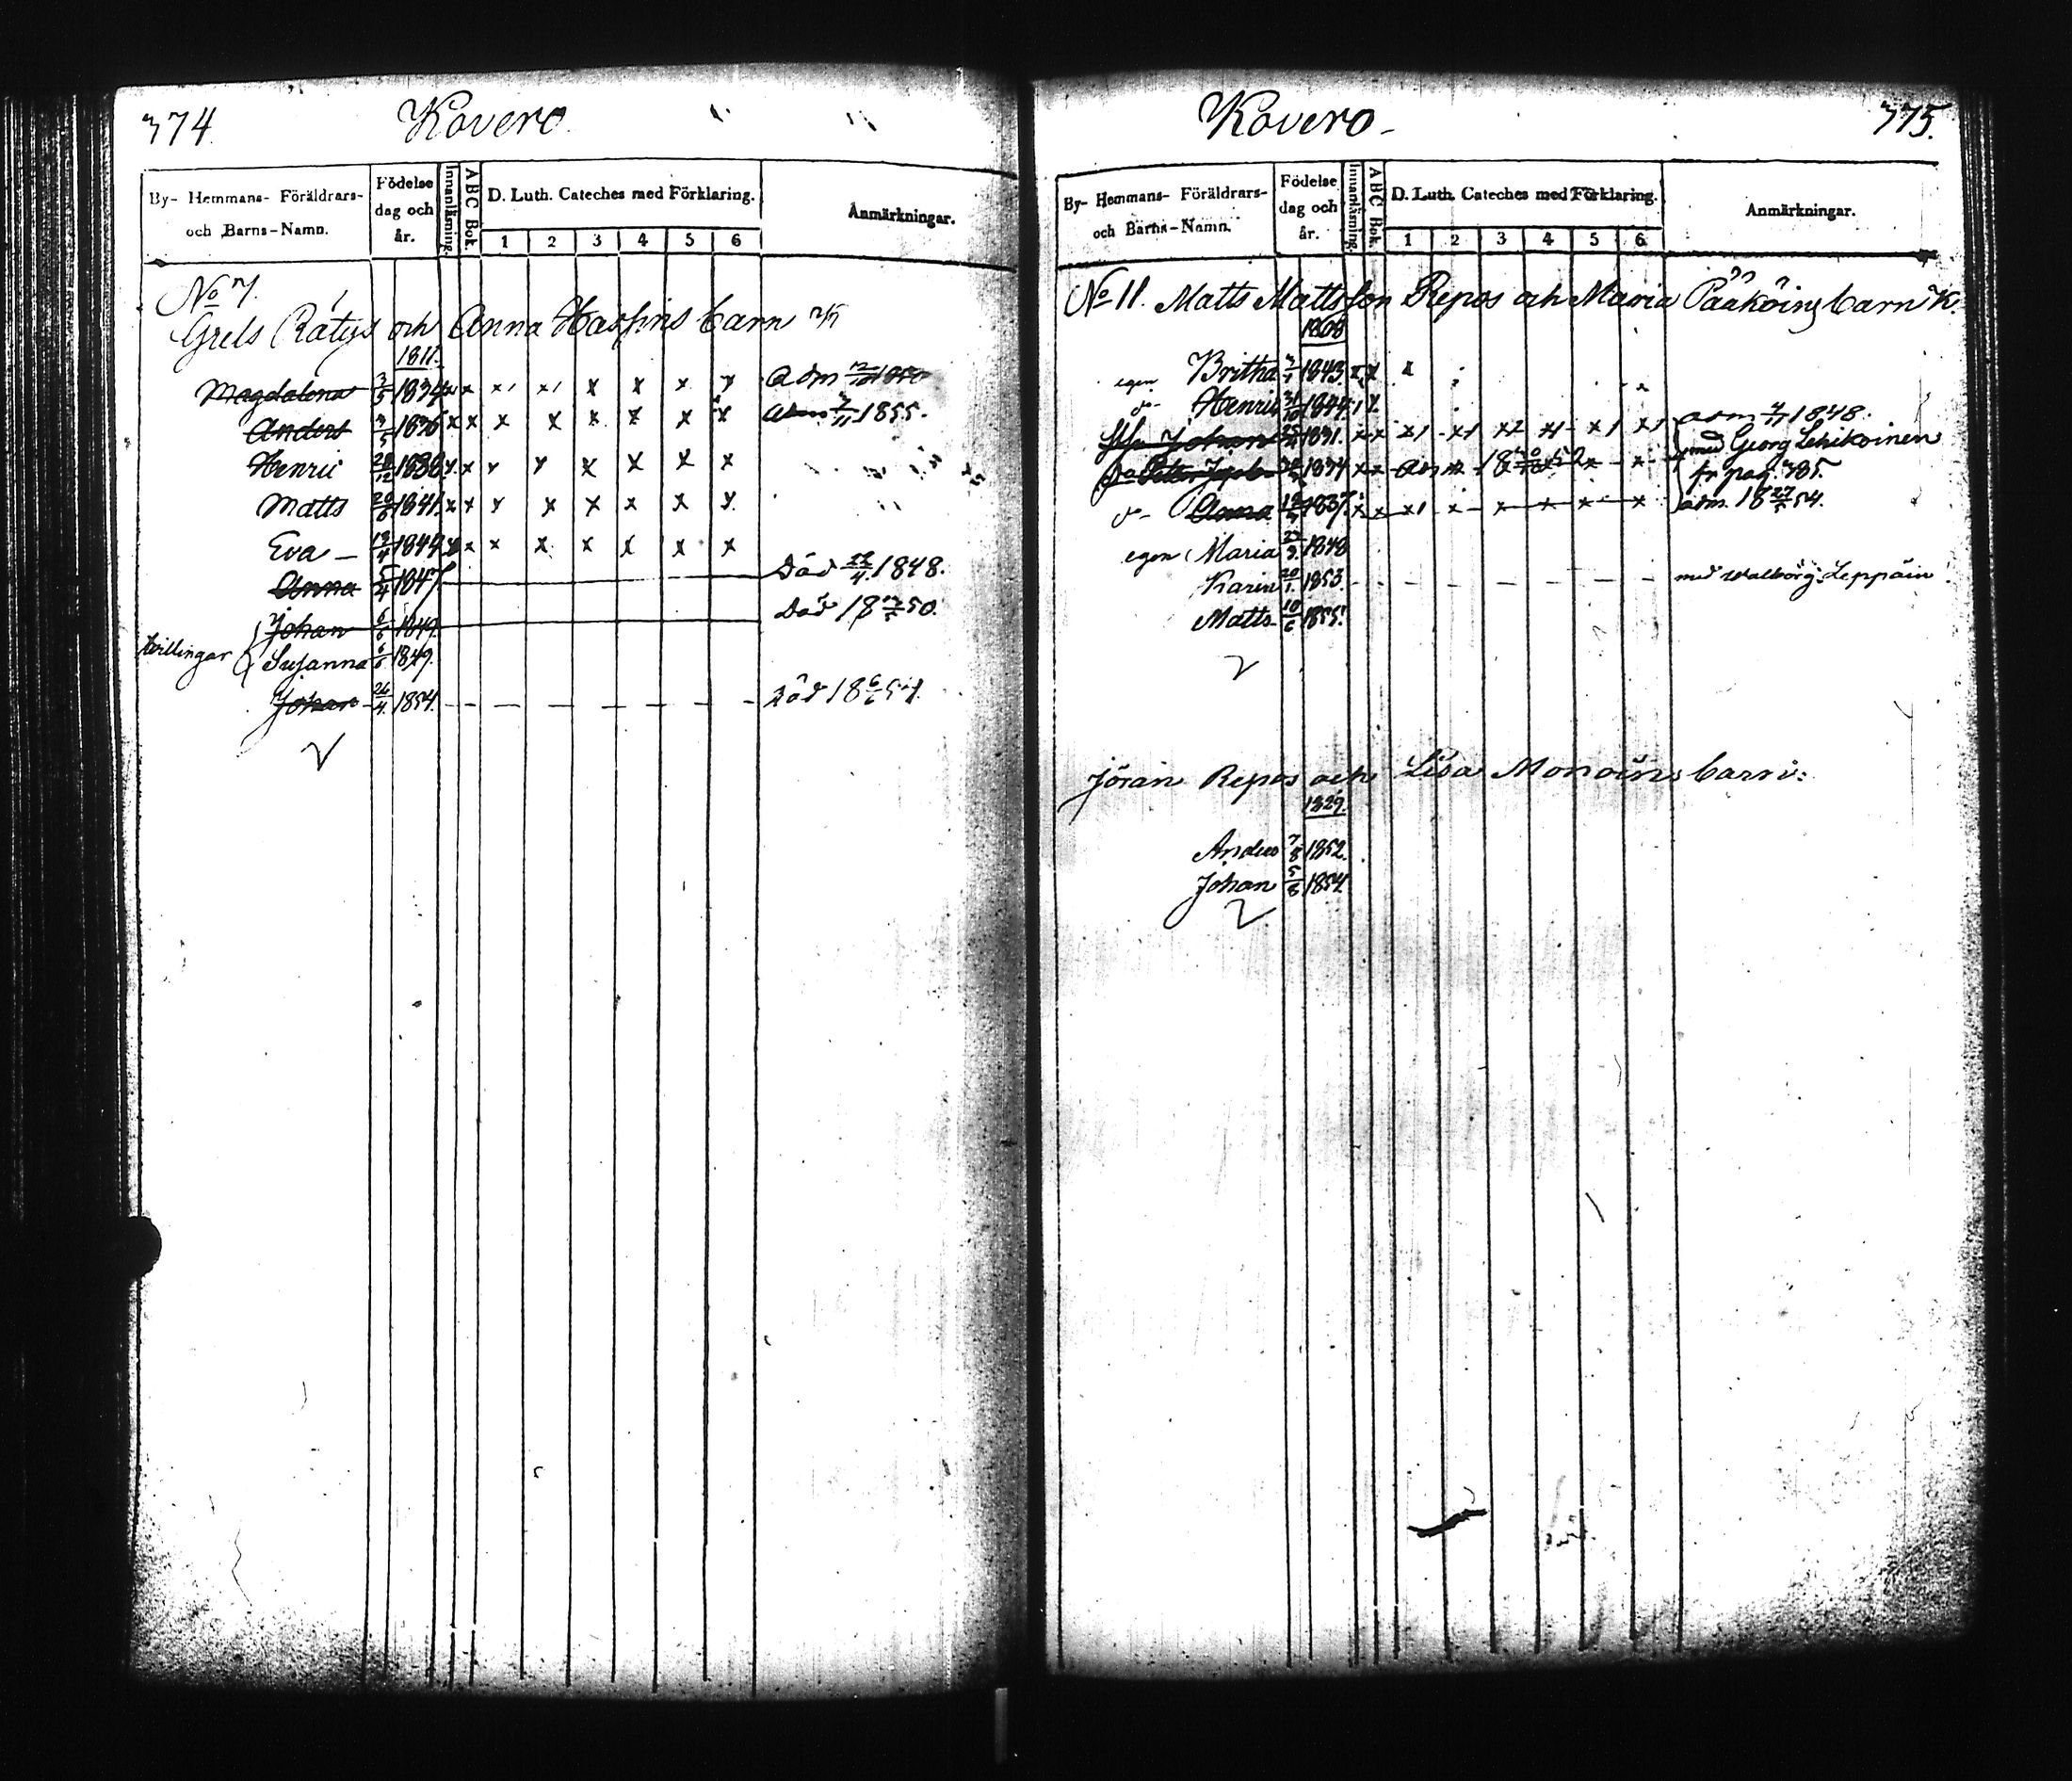 374 Kovero
By- Hemmans- Föräldrars- och Barns-Namn. Födelse dag och år. Innanläsning. A B C Bok. D. Luth. Cateches med Förklaring. 1 2 3 4 5 6 Anmärkningar.
No 7.
Grels Ratys och Anna Hassins barn
1811.
Magdalena 3/5 1834 x x x x x x x x adm
Anders 3/5 1836 x x x x x x x x adm 1855.
Henric 1838 x x x x x x x x
Matts 20/8 1841 x x x x x x x x
Eva 13/4 1844 x x x x x x x x
Anna 5/4 1847 Död 22/4 1848.
Johan 6/6 1849. Död 18 50.
tvillingar Susanna 6/6 1849.
Johan 24/4 1854. Död 18 6/6 54.
Kovero 375.
By- Hemmans- Föräldrars- och Barns-Namn. Födelse dag och år. Innanläsning. A B C Bok. D. Luth. Cateches med Förklaring. 1 2 3 4 5 6 Anmärkningar.
No 11. Matts Mattsson Repos och Maria Pääköins barn
1808
egen Britha 1843 x x x
do Henric 31/10 1844
Johan 1831. x x x x x x x x adm 4/7 1848.
Petter 1834 x x adm med Georg Lehikoinen fr pag. 385.
do Anna 1837. x x x x x x x x adm. 18 27/5 54.
egen Maria 1848
Karin 20/1. 1853. med Walborg Leppäin
Matts 10/6 1855.
Jöran Repos och Lisa Monoins barn:
1829.
Anders 7/8 1852.
Johan 5/8 1854